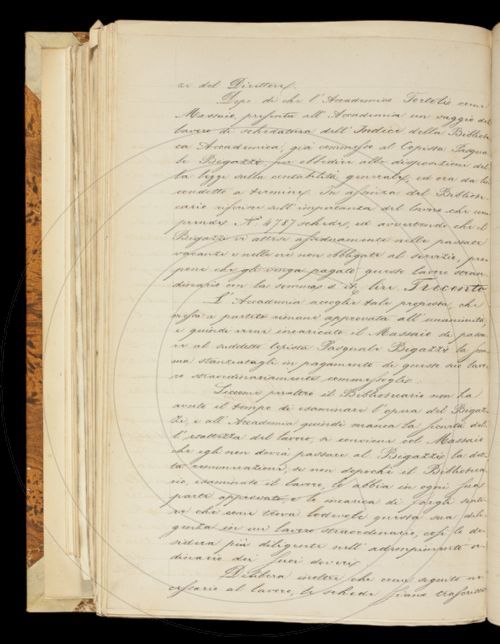 ze del Direttore.
Dopo di che l'Accademico Tortoli come
Massaio, presenta all'Accademia un saggio del
lavoro di schedatura dell'Indice della Bibliote
ca Accademica, già commesso al Copista Pasqua
le Bigazzi per obbedire alle disposizioni del
la legge sulla contabilità generale, ed ora da lui
condotto a termine. In assenza del Bibliote
cario riferisce sull'importanza del lavoro che com
prende N° 4787 schede, ed avvertendo che il
Bigazzi vi attese assiduamente nelle passate
vacanze e nelle ore non obbligate al servizio, pro
pone che gli venga pagato questo lavoro straor
dinario con la somma d'It. lire Trecento
L'Accademia accoglie tale proposta, che
messa a partito rimane approvata all'unanimità,
e quindi viene incaricato il Massaio di passa
re al suddetto Copista Pasquale Bigazzi la som
ma stanziatagli in pagamento di questo suo lavo
ro straordinariamente commessogli.
Siccome peraltro il Bibliotecario non ha
avuto il tempo di esaminare l'opera del Bigaz
zi, e all'Accademia quindi manca la prova del
l'esattezza del lavoro, si conviene col Massaio
che egli non dovrà passare al Bigazzi la det
ta remunerazione, se non dopochè il Biblioteca
rio, esaminato il lavoro, lo abbia in ogni sua
parte approvato, e lo incarica di fargli senti
re che come trova lodevole questa sua dili
genza in un lavoro straordinario, così lo de
sidera più diligente nell'adempimento or
dinario dei suoi doveri.
Delibera inoltre che come seguito ne
cessario al lavoro, le schede siano trascritte